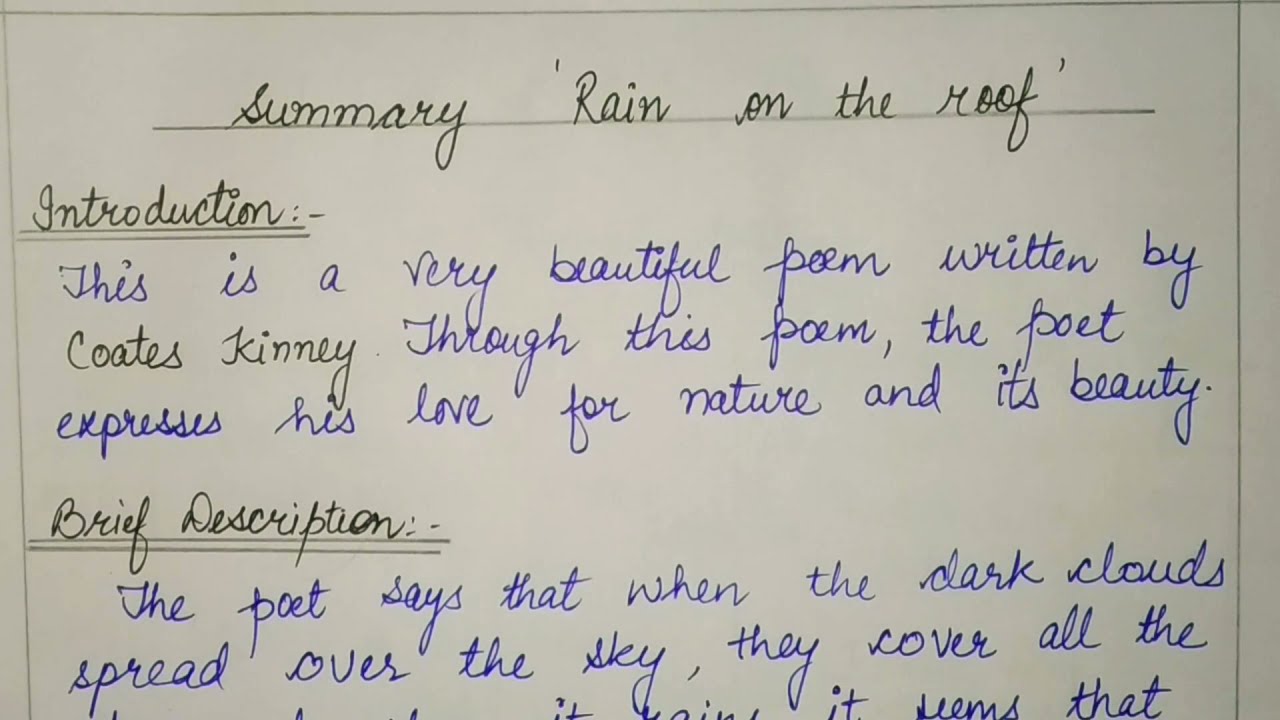 Summary 'Rain on the roof'
Introduction:-
This is a very beautiful poem written by
Coates Kinney. Through this poem, the poet
expresses his love for nature and its beauty.
Brief Description:-
The poet says that when the dark clouds
spread over the sky, they cover all the
it rains it seems that